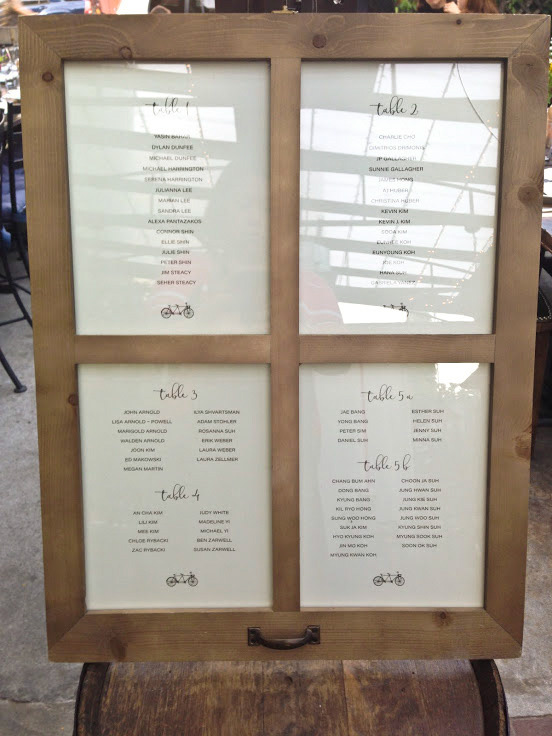 table 1
YASIN BAHAR
DYLAN DUNFEE
MICHAEL DUNFEE
MICHAEL HARRINGTON
SERENA HARRINGTON
JULIANNA LEE
MARIAN LEE
SANDRA LEE
ALEXA PANTAZAKOS
CONNOR SHIN
ELLIE SHIN
JULIE SHIN
PETER SHIN
JIM STEACY
SEHER STEACY
table 2
CHARLIE CHO
JP GALLAGHER
SUNNIE GALLAGHER
HONG
CHRISTINA HUBER
KEVIN KIM
KEVIN J. KIM
KIM
KOH
EUNYOUNG KOH
SUH
SUH
table 3
JOHN ARNOLD
LISA ARNOLD - POWELL
MARIGOLD ARNOLD
WALDEN ARNOLD
JOON KIM
ED MAKOWSKI
MEGAN MARTIN
ILYA SHVARTSMAN
ADAM STOHLER
ROSANNA SUH
ERIK WEBER
LAURA WEBER
LAURA ZELLMER
table 4
AN-CHIA KIM
LILI KIM
MIES KIM
CHLOE RYBACKI
ZAC RYBACKI
JUDY WHITE
MADELINE YI
MICHAEL YI
BEN ZARWELL
SUSAN ZARWELL
table 5a
JAE BANG
YONG BANG
PETER SIM
DANIEL SUH
ESTHER SUH
HELEN SUH
JENNY SUH
MINNA SUH
table 5b
CHANG BUM AHN
DONG BANG
KYUNG BANG
KIL RYO HONG
SUNG WOO HONG
SUK JA KIM
HYO KYUNG KOH
JIN MO KOH
MYUNG KWAN KOH
CHOON JA SUH
JUNG HWAN SUH
JUNG KIS SUH
JUNG KWAN SUH
JUNG WOO SUH
KYUNG SHIN SUH
MYUNG SOOK SUH
SOON OK SUH